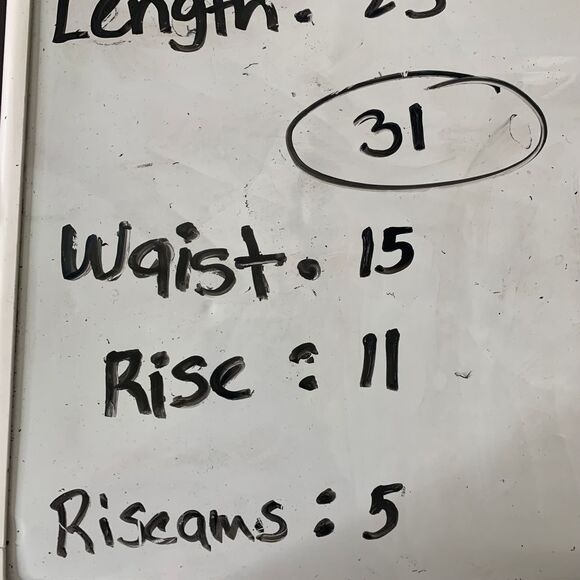 Length.
31
Waist. 15
Rise : 11
Riseams : 5